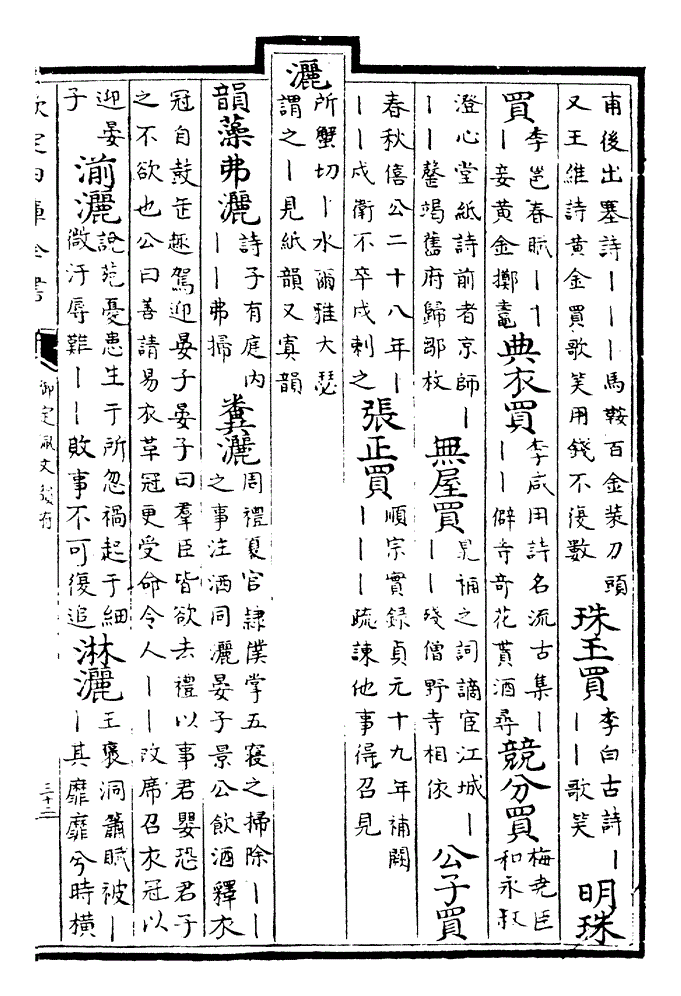 甫後出塞詩丨丨丨馬鞍百金裝刀頭
又王維詩黃金買歌笑用錢不復數
珠玉買
李白古詩丨
丨丨歌笑
明珠
買
李邕春賦丨丨
丨妾黃金擲
典衣買
李咸用詩名流古集丨
丨丨僻寺奇花貰酒尋
競分買
梅堯臣
和永叔
澄心堂紙詩前者京師丨
丨丨罄竭舊府歸鄒枚
無屋買
晁補之詞謫宦江城丨
丨丨殘僧野寺相依
公子買
春秋僖公二十八年丨
丨丨戍衛不卒戍刺之
張正買
順宗實録貞元十九年補闕
丨丨丨疏諫他事得召見
灑
所蟹切丨水爾雅大瑟
謂之丨見紙韻又寘韻
韻藻弗灑
詩子有庭内
丨丨弗掃
糞灑
周禮夏官隷僕掌五寢之掃除丨丨
之事注洒同灑晏子景公飲酒釋衣
冠自鼓缶趣駕迎晏子晏子曰羣臣皆欲去禮以事君嬰恐君子
之不欲也公曰善請易衣革冠更受命令人丨丨改席召衣冠以
迎晏
子
湔灑
說苑憂患生于所忽禍起于細
微汙辱難丨丨敗事不可復追
淋灑
王褒洞簫賦被丨
丨其靡靡兮時橫
欽定四庫全書
御定佩文韻府
三十二